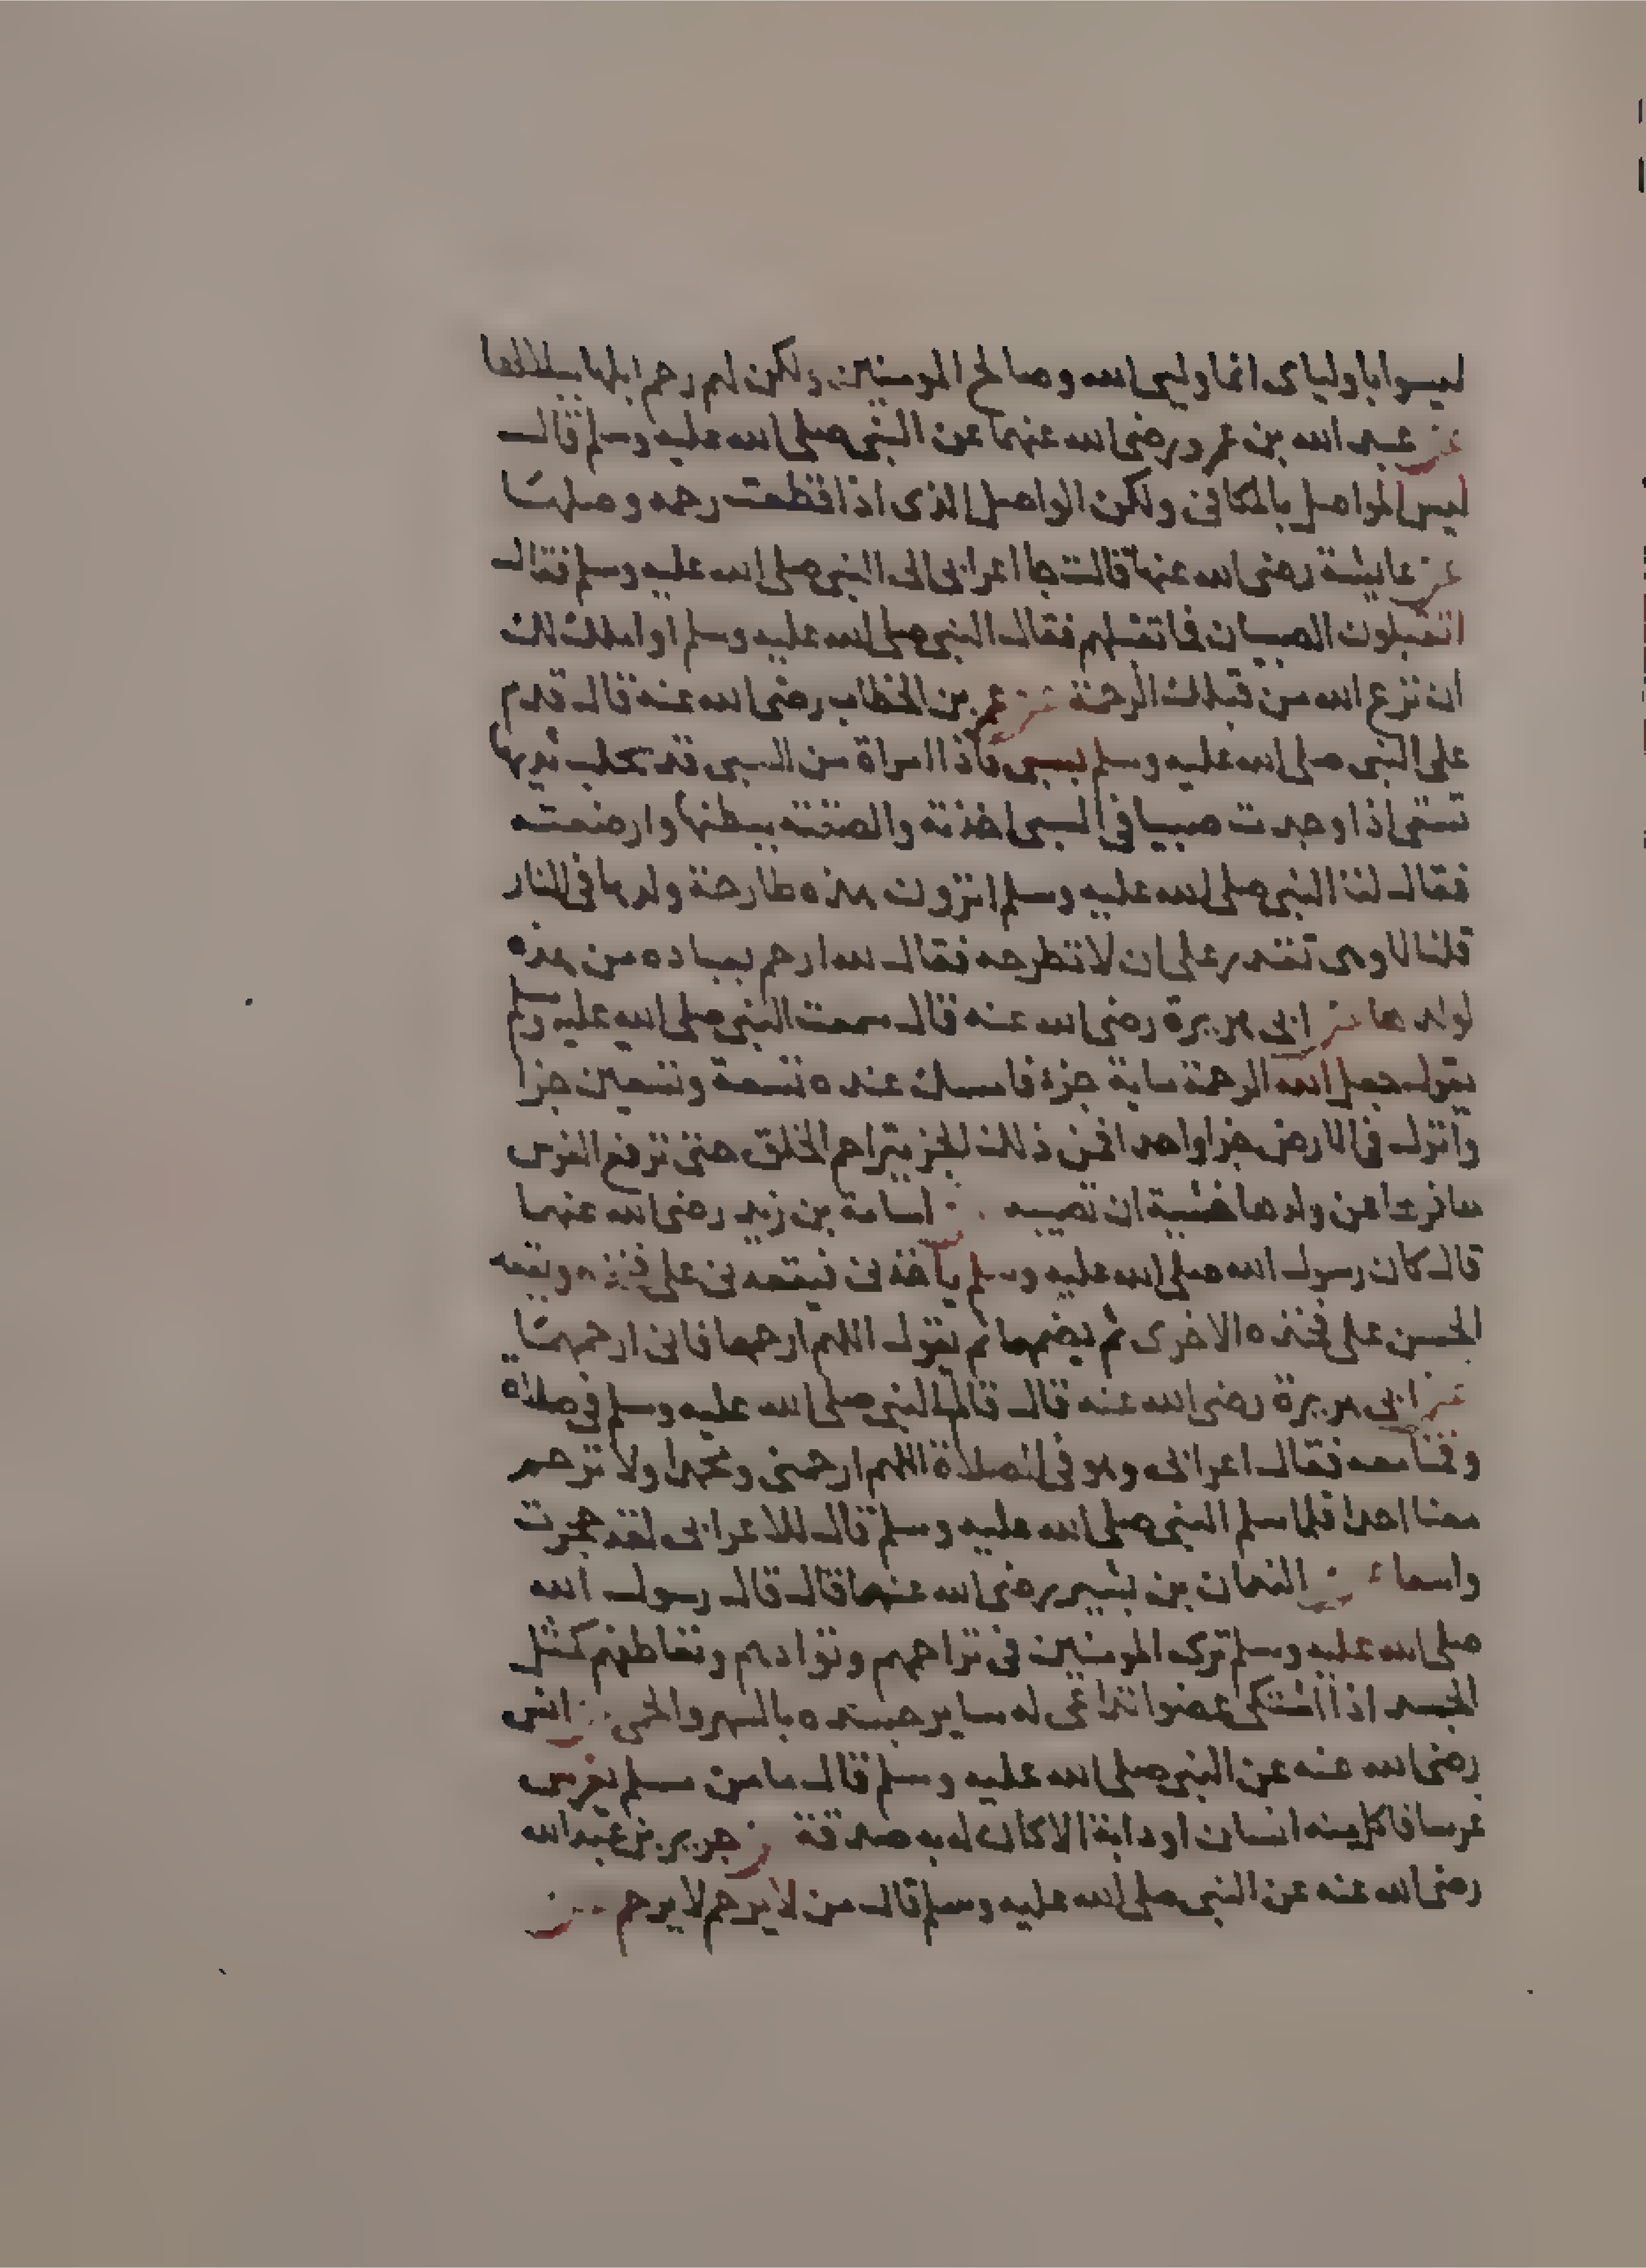 ليسوا باولياى انما وليى الله وصالح المومنين ولكن لهم رحم ابلها ببلالها
عن عبد الله بن عمرو رضى الله عنهما عن النبى صلى الله عليه وسلم قال
ليس الواصل بالمكافى ولكن الواصل الذى اذا قطعت رحمه وصلها
عن عايشة رضى الله عنها قالت جا اعرابى الى النبى صلى الله عليه وسلم فقال
اتقبلون الصبيان فما تقبلهم فقال النبى صلى الله عليه وسلم او املك لك
ان نزع الله من قبلك الرحمة عن عمر بن الخطاب رضى الله عنه قال قدم
على النبى صلى الله عليه وسلم بسبى فاذا امراة من السبى قد تحلب ثديها
تسقى اذا وجدت صبيا فى السبى اخذته والصقته ببطنها وارضعته
فقال لنا النبى صلى الله عليه وسلم اترون هذه طارحة ولدها فى النار
قلنا لا وهى تقدر على ان لا تطرحه فقال لله ارحم بعباده من هذه
لولدها عن ابى هريرة رضى الله عنه قال سمعت النبى صلى الله عليه وسلم
يقول جعل الله الرحمة ماية جزء فامسك عنده تسعة وتسعين جزا
وانزل فى الارض جزا واحدا فمن ذلك الجز يتراحم الخلق حتى ترفع الفرس
حافرها عن ولدها خشية ان تصيبه عن اسامة بن زيد رضى الله عنهما
قال كان رسول الله صلى الله عليه وسلم ياخذنى فيقعدنى على فخذه ويقعد
الحسن على فخذه الاخرى ثم يضمهما ثم يقول اللهم ارحمهما فانى ارحمهما
عن ابى هريرة رضى الله عنه قال قام النبى صلى الله عليه وسلم فى صلاة
وقمنا معه فقال اعرابى وهو فى الصلاة اللهم ارحمنى ومحمدا ولا ترحم
معنا احدا فلما سلم النبى صلى الله عليه وسلم قال للاعرابى لقد حجرت
واسعا عن النعمان بن بشير رضى الله عنهما قال قال رسول الله
صلى الله عليه وسلم ترى المومنين فى تراحمهم وتوادهم وتعاطفهم كمثل
الجسد اذا اشتكى عضوا تداعى له ساير جسده بالسهر والحمى عن انس
رضى الله عنه عن النبى صلى الله عليه وسلم قال ما من مسلم يغرس
غرسا فاكل منه انسان او دابة الا كان له به صدقة عن جرير بن عبد الله
رضى الله عنه عن النبى صلى الله عليه وسلم قال من لا يرحم لا يرحم عن